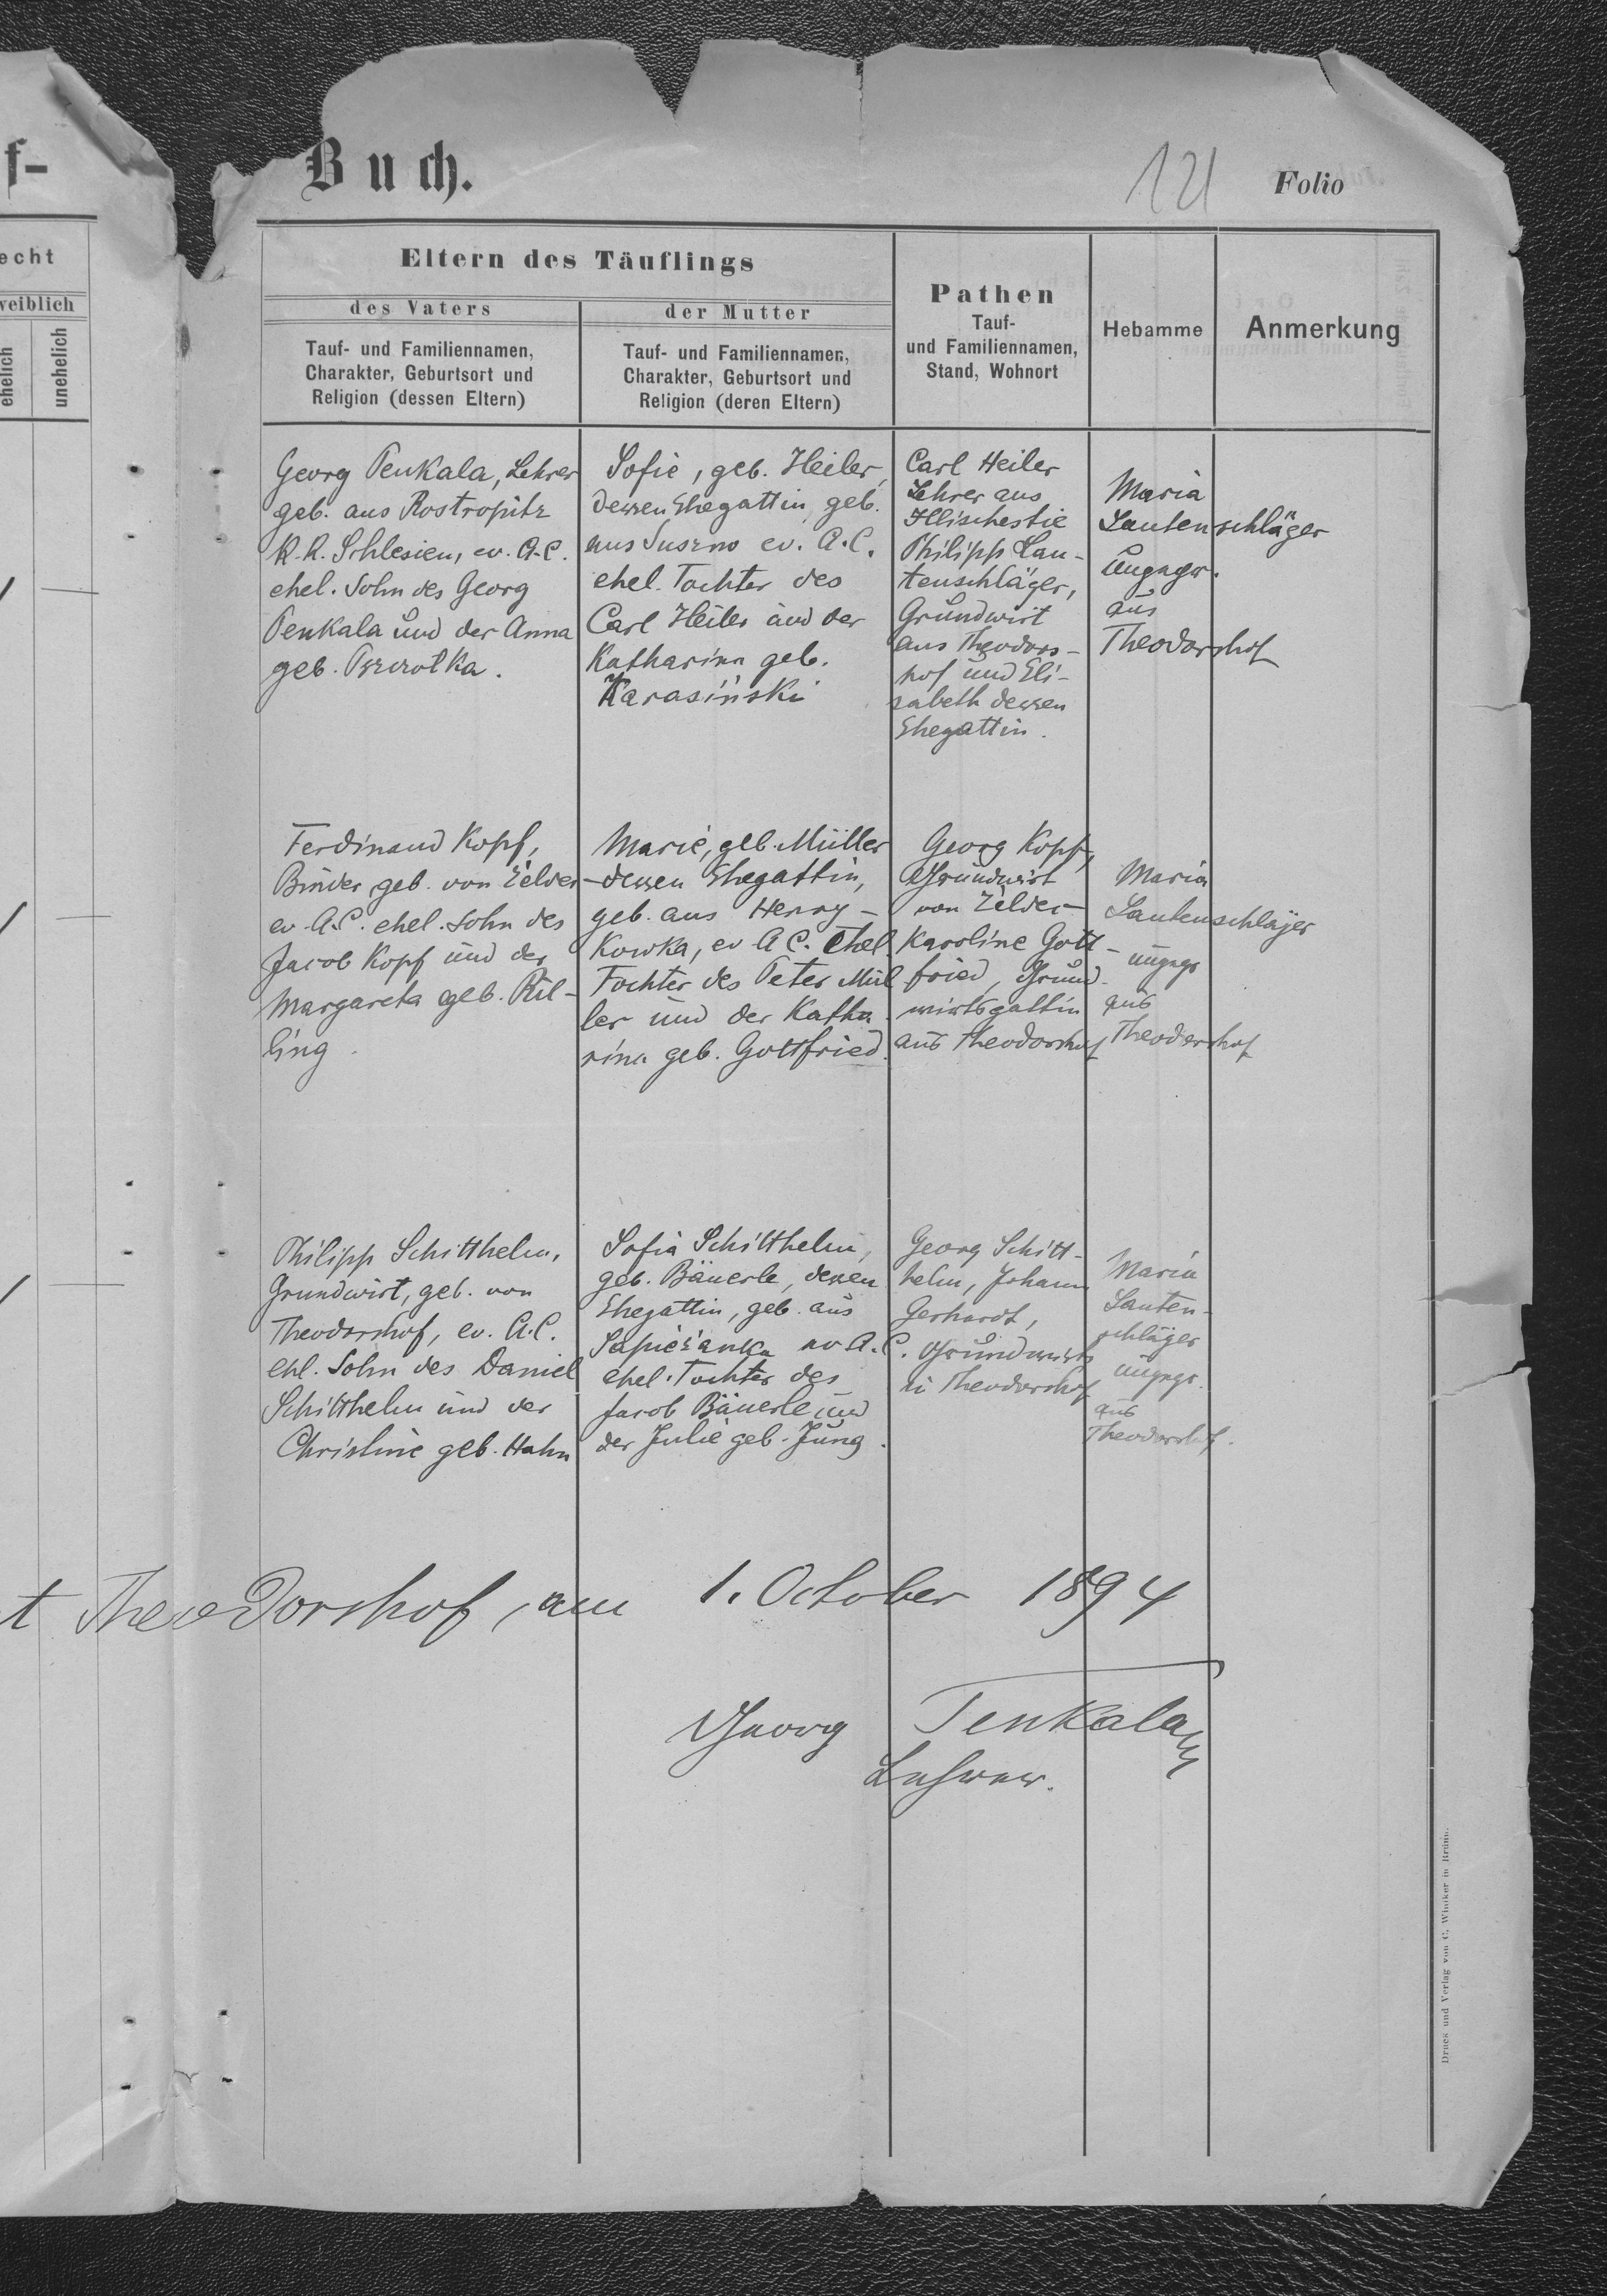 f-
Buch.
121
Folio
echt
weiblich
ehelich
unehelich
Eltern des Täuflings
des Vaters
der Mutter
Tauf- und Familiennamen,
Charakter, Geburtsort und
Religion (dessen Eltern)
Tauf- und Familiennamen,
Charakter, Geburtsort und
Religion (deren Eltern)
Pathen
Tauf-
und Familiennamen,
Stand, Wohnort
Hebamme
Anmerkung
Georg Penkala, Lehrer
geb. aus Rostropitz
K. K. Schlesien, ev. A.C.
ehel. Sohn des Georg
Penkala und der Anna
geb.
Sofie, geb. Heiler,
dessen Ehegattin, geb.
aus Suszno ev. A.C.
ehel. Tochter des
Carl Heiler und der
Katharina geb.
Karasiński
Carl Heiler
Lehrer aus
Illischestie
Philipp Lau-
tenschläger,
Grundwirt
aus Theodors-
hof und Eli-
sabeth dessen
Ehegattin.
Maria
Lautenschläger
ungepr.
aus
Theodorshof
Ferdinand Kopf,
Binder, geb. von
ev. A.C. ehel. Sohn des
Jacob Kopf und der
Margareta geb. Ril-
ling.
Marie, geb. Müller
dessen Ehegattin,
geb. aus Henry-
kowka, ev A C. Ehel.
Tochter des Peter Mül
ler und der Katha
rina geb. Gottfried.
Georg Kopf,
Grundwirt
von
Karoline Gott-
fried, Grund-
wirtsgattin
aus Theodorshof
Maria
Lautenschläger
ungepr
aus
Theodorshof
Philipp Schitthelm,
Grundwirt, geb. von
Theodorshof, ev. A.C.
ehl. Sohn des Daniel
Schitthelm und der
Christine geb. Hahn
Sofia Schitthelm,
geb. Bäuerle, dessen
Ehegattin, geb. aus
Sapieżanka ev A.C.
ehel. Tochter des
Jacob Bäuerle und
der Julie geb. Jung.
Georg Schitt-
helm, Johann
Gerhardt,
Grundwirts
in Theodorshof
Maria
Lauten-
schläger
ungepr.
aus
Theodorshof.
t Theodorshof, am 1. October 1894
Georg Penkala
Lehrer.
Druck und Verlag von C. Winiker in Brünn.